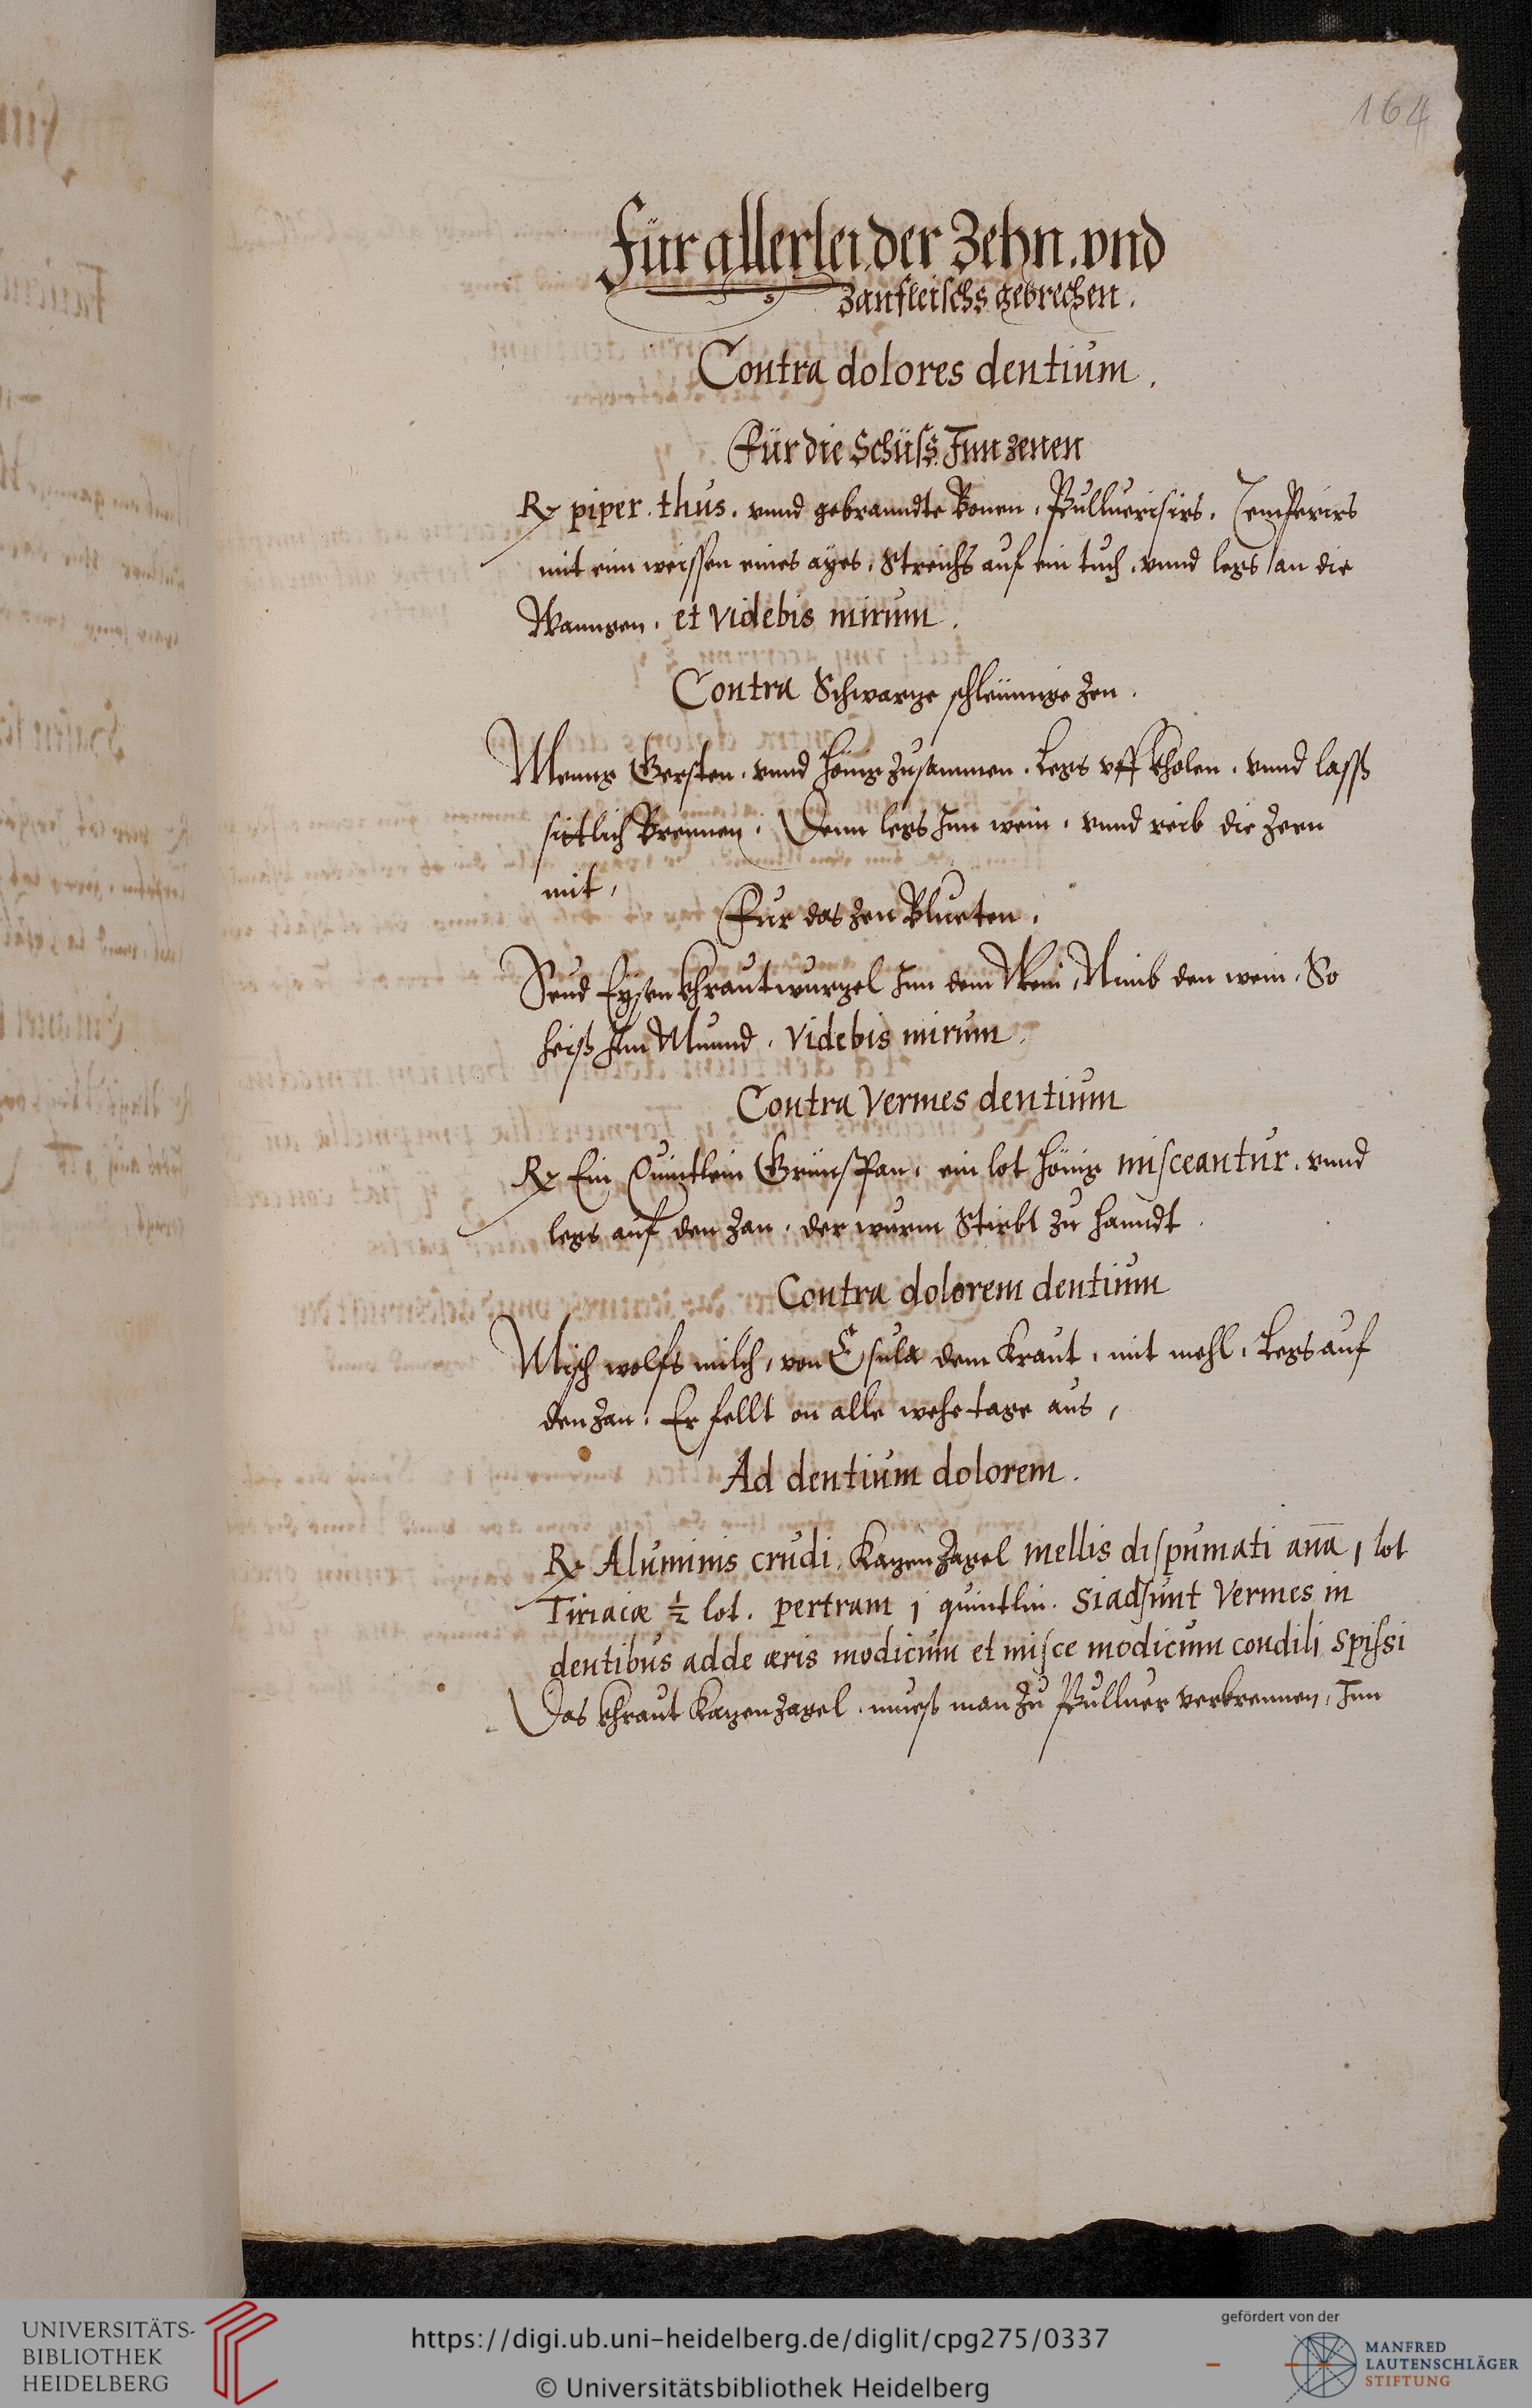 164
Für allerlei der Zehn. vnd
zanfleischs gebrechen.
Contra dolores dentium.
Für die Schüss Jnn zenen
R piper. thus. vnnd gebranndte Bonen. Pulluerisirs. Temperirs
mit eim weissen eines ayes. Streichs auf ein tuch. vnnd legs an die
Wanngen. et videbis mirum.
Contra Schwartze schleimige Zen.
Menng Gersten. vnnd hönig zusammen. legs vff kholen. vnnd lasß
sittlich Brennen. Denn legs Jnn wein. vnnd reib die Zeen
mit,
Fur das zen Blueten.
Seud Eysenkhraut wurzel Jnn dem Wein, Nimb den wein. So
heiß Jm Munnd. videbis mirum.
Contra Vermes dentium
R Ein Quintlein Grünspan. ein lot hönig misceantur. vnnd
legs auf den Zan. der wurm Stirbt zu hanndt.
Contra dolorem dentium
Misch wolfs milch, von Esula dem Kraut. mit mehl. Legs auf
den Zan. Er fellt on alle wehetage aus,
Ad dentium dolorem.
R Aluminis crudi, Kazenzagel mellis dispumati ana 1 lot
Tiriacæ ½ lot. pertram j quintlin. Si adsunt vermes in
dentibus adde æris modicum et misce modicum condili spissi
Das khraut Kazenzagel. muess man zu Pulluer verbrennen, Jnn
UNIVERSITÄTS-
BIBLIOTHEK
HEIDELBERG
https://digi.ub.uni-heidelberg.de/diglit/cpg275/0337
© Universitätsbibliothek Heidelberg
gefördert von der
MANFRED
LAUTENSCHLÄGER
STIFTUNG